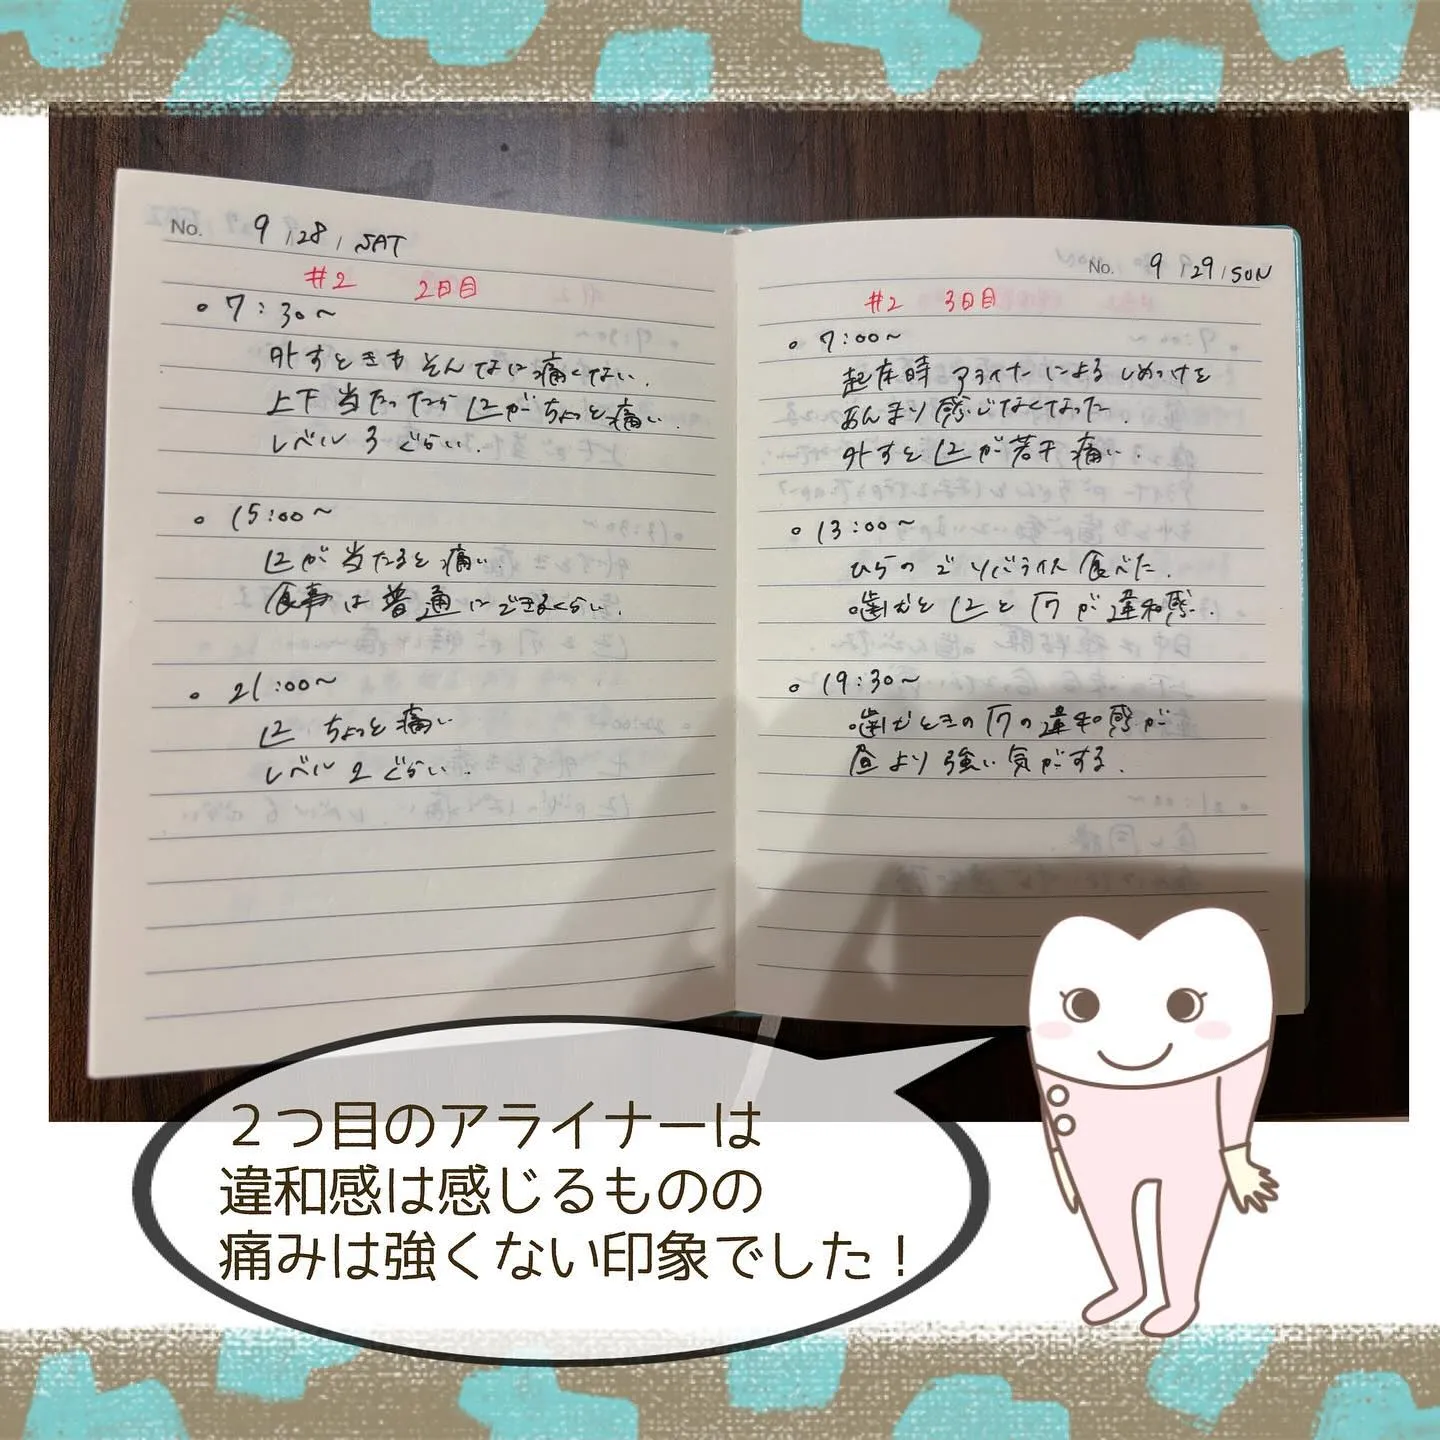 No. 9/28/SAT
#2 2日目
○ 7:30〜
外すときもそんなに痛くない.
上下当たったら⌊2がちょっと痛い.
レベル3ぐらい.
○ 15:00〜
⌊2が当たると痛い.
食事は普通にできるくらい.
○ 21:00〜
⌊2 ちょっと痛い
レベル2ぐらい.
No. 9/29/SUN
#2 3日目
○ 7:00〜
起床時アライナーによるしめつけを
あんまり感じなくなった.
外すと⌊2が若干痛い.
○ 13:00〜
ひらのでソバライス食べた.
噛むと⌊2と⌈7が違和感.
○ 19:30〜
噛むときの⌈7の違和感が
昼より強い気がする.
２つ目のアライナーは
違和感は感じるものの
痛みは強くない印象でした！